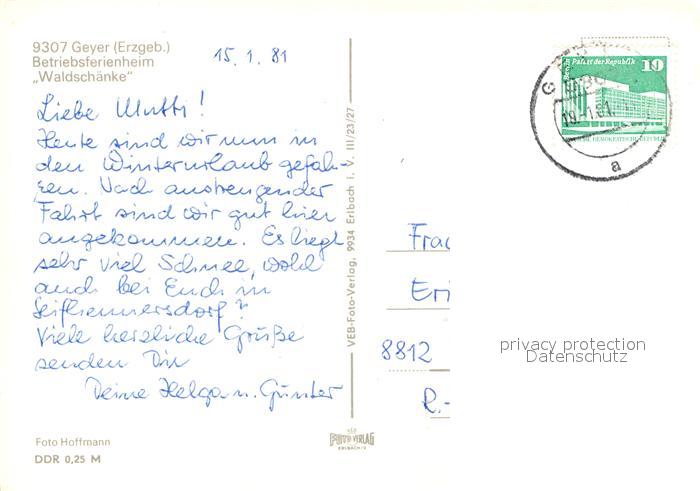 9307 Geyer (Erzgeb.)
Betriebsferienheim
„Waldschänke“
15. 1. 81
Liebe Mutti!
Heute sind wir nun in
den Winterurlaub gefah-
ren. Nach anstrengender
Fahrt sind wir gut hier
angekommen. Es liegt
sehr viel Schnee, wohl
auch bei Euch in
Seifhennersdorf?
Viele herzliche Grüße
senden Dir
Deine Helga u. Günter
Foto Hoffmann
DDR 0,25 M
VEB-Foto-Verlag, 9934 Erlbach I. V. III/23/27
FOTO VERLAG
ERLBACH
Berlin Palast der Republik
10
DEMOKRATISCHE REPUBLIK
a
Frau
Eri
8812
privacy protection
Datenschutz
R.-